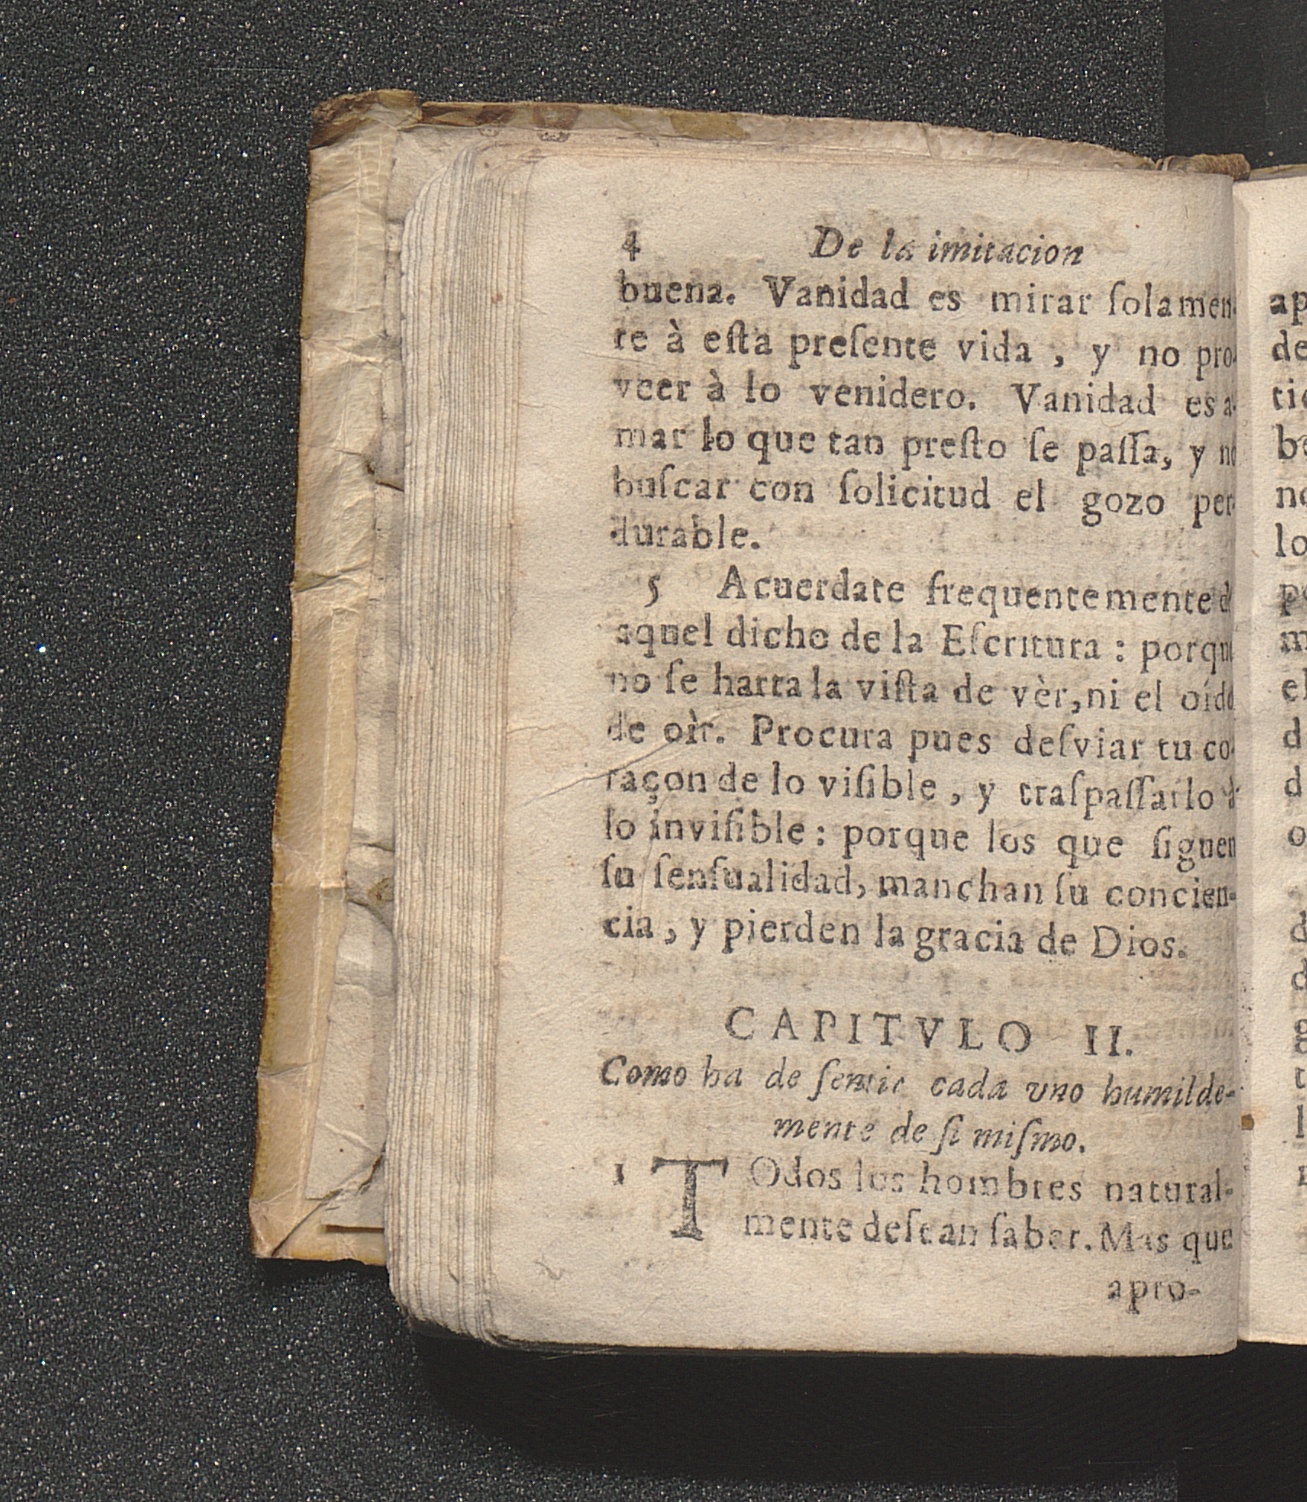 4 De la imitacion
buena. Vanidad es mirar ſolamen-
te à eſta preſente vida, y no pro-
veer à lo venidero. Vanidad es a-
mar lo que tan preſto ſe paſſa, y no
buſcar con ſolicitud el gozo per-
durable.
5 Acuerdate frequentemente d
aquel dicho de la Eſcritura: porqu
no ſe harta la viſta de vèr, ni el oído
de oìr. Procura pues deſviar tu co-
raçon de lo viſible, y traſpaſſarlo à
lo inviſible: porque los que ſiguen
ſu ſenſualidad, manchan ſu concien-
cia, y pierden la gracia de Dios.
CAPITVLO II.
Como ha de ſentir cada vno humilde-
mente de ſi miſmo.
1 TOdos los hombres natural-
mente deſean ſaber. Mas que
apro-
ap
de
tic
be
no
lo
po
m
el
d
d
o
d
d
g
t
l